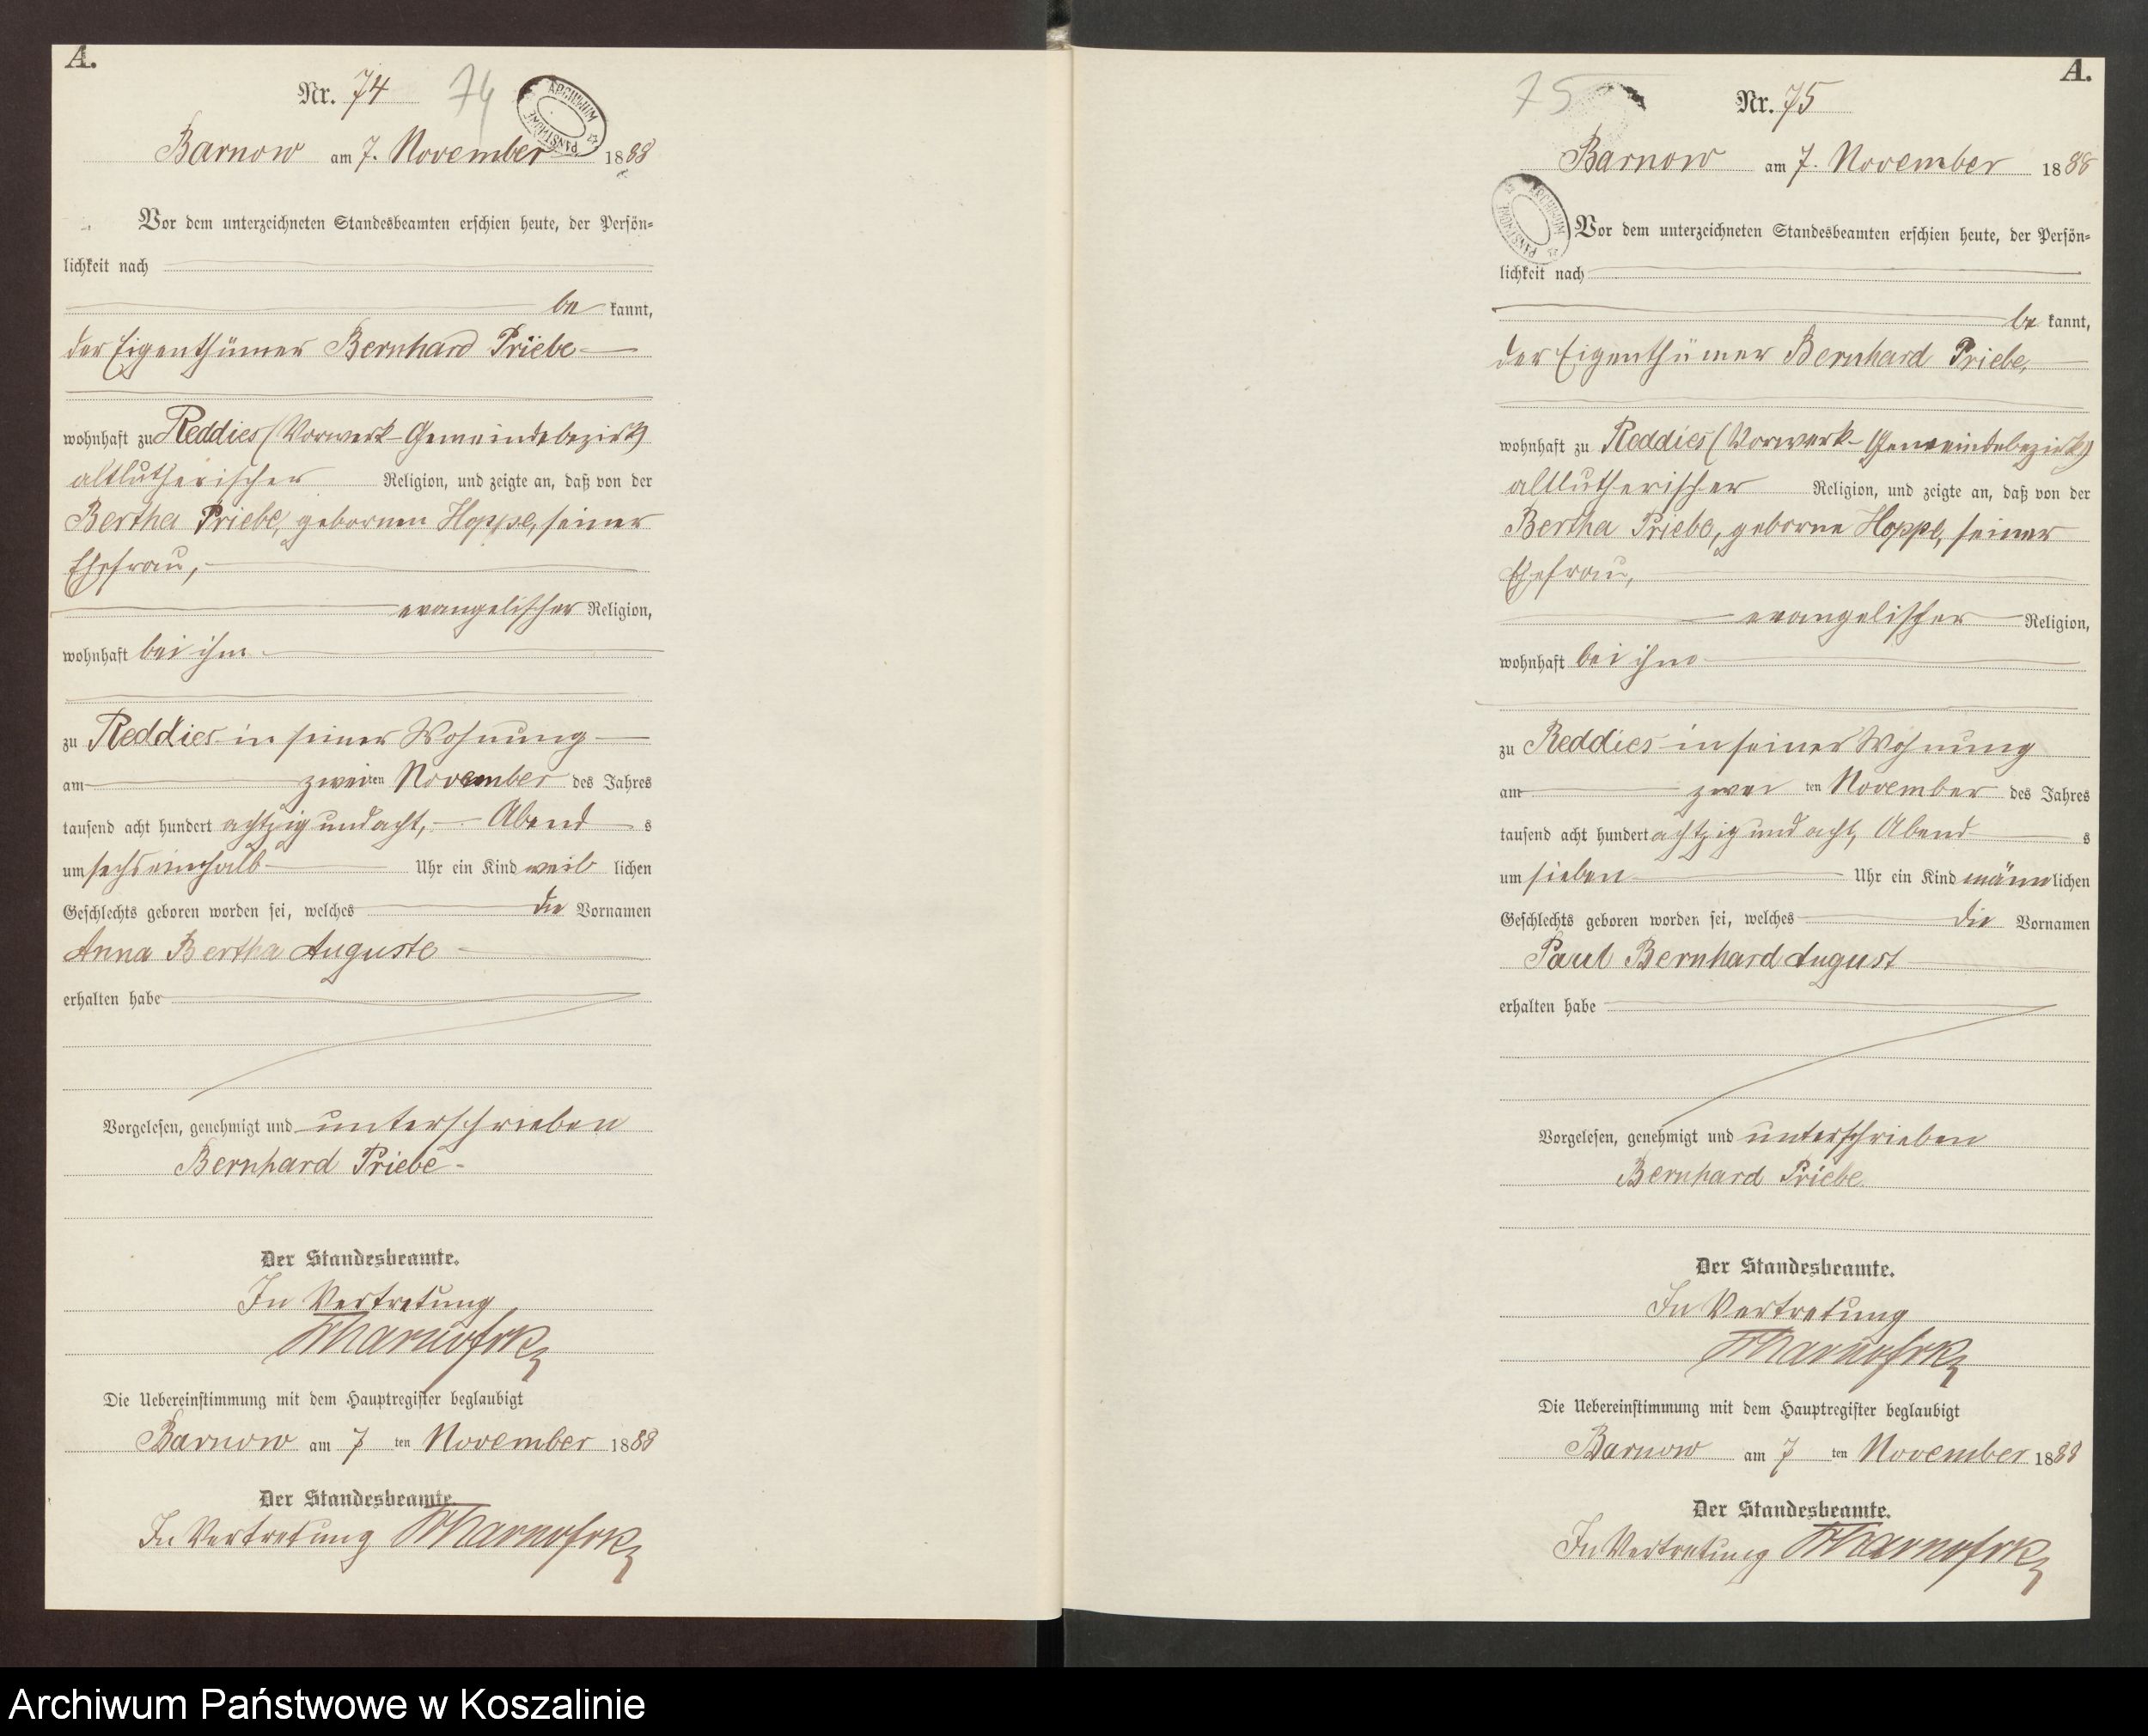 A.
Nr. 74 74
ARCHIWUM PAŃSTWOWE
Barnow am 7. November 1888
Vor dem unterzeichneten Standesbeamten erschien heute, der Persön-
lichkeit nach
be kannt,
der Eigenthümer Bernhard Priebe
wohnhaft zu Reddies (Vorwerk-Gemeindebezirk)
altlutherischer Religion, und zeigte an, daß von der
Bertha Priebe, gebornen Hoppe, seiner
Ehefrau,
evangelischer Religion,
wohnhaft bei ihm
zu Reddies in seiner Wohnung
am zweiten November des Jahres
tausend acht hundert achtzig und acht, Abend s
um sechseinhalb Uhr ein Kind weib lichen
Geschlechts geboren worden sei, welches die Vornamen
Anna Bertha Auguste
erhalten habe
Vorgelesen, genehmigt und unterschrieben
Bernhard Priebe
Der Standesbeamte.
In Vertretung
Die Uebereinstimmung mit dem Hauptregister beglaubigt
Barnow am 7 ten November 1888
Der Standesbeamte.
In Vertretung
A.
75 Nr. 75
Barnow am 7. November 1888
ARCHIWUM PAŃSTWOWE
Vor dem unterzeichneten Standesbeamten erschien heute, der Persön-
lichkeit nach
be kannt,
der Eigenthümer Bernhard Priebe,
wohnhaft zu Reddies (Vorwerk-Gemeindebezirk)
altlutherischer Religion, und zeigte an, daß von der
Bertha Priebe, geborne Hoppe, seiner
Ehefrau,
evangelischer Religion,
wohnhaft bei ihm
zu Reddies in seiner Wohnung
am zwei ten November des Jahres
tausend acht hundert achtzig und acht, Abend s
um sieben Uhr ein Kind männlichen
Geschlechts geboren worden sei, welches die Vornamen
Paul Bernhard August
erhalten habe
Vorgelesen, genehmigt und unterschrieben
Bernhard Priebe
Der Standesbeamte.
In Vertretung
Die Uebereinstimmung mit dem Hauptregister beglaubigt
Barnow am 7 ten November 1888
Der Standesbeamte.
In Vertretung
Archiwum Państwowe w Koszalinie